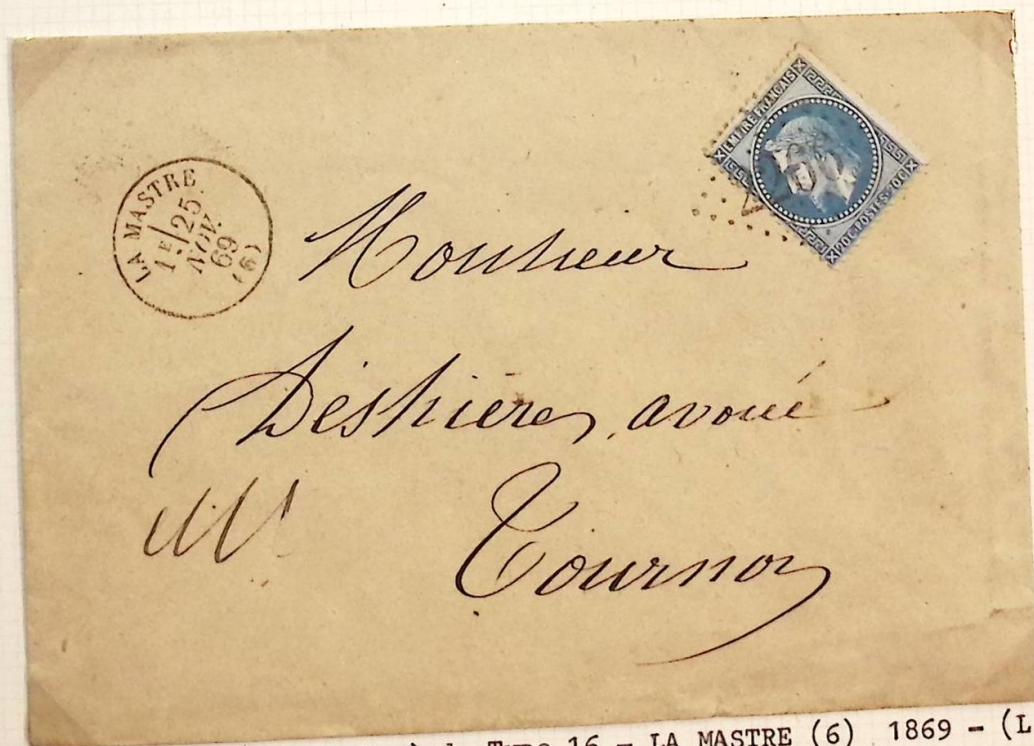 LA MASTRE
1E 25
NOV.
69
(6)
EMPIRE FRANCAIS
20C POSTES 20C
Monsieur
avoué
Tournon
Type 16 - LA MASTRE (6) 1869 - (L